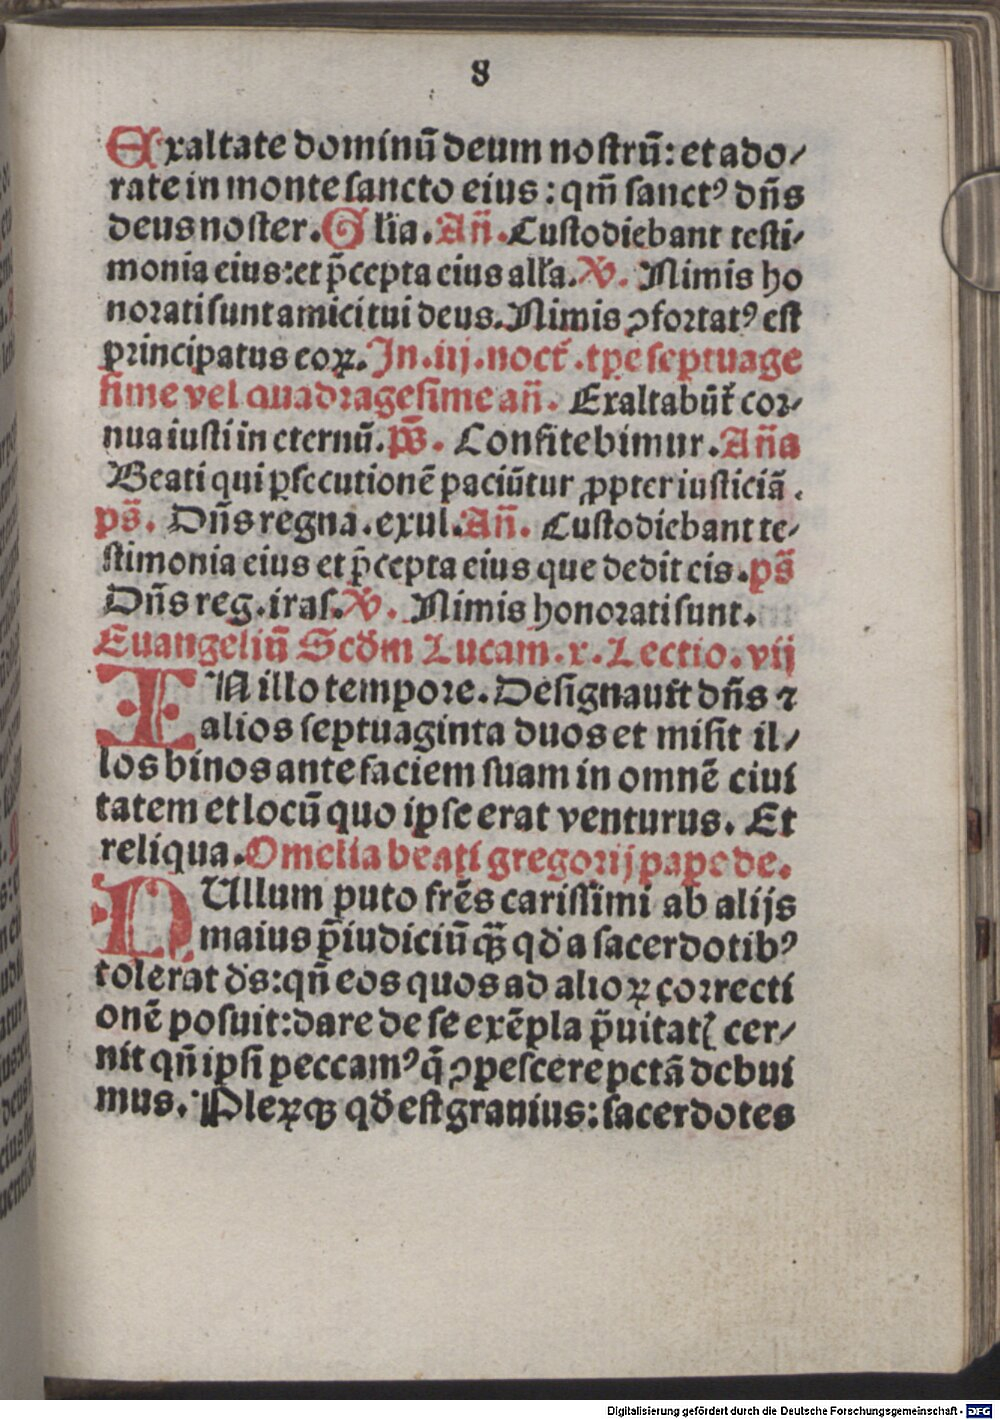 8
Exaltate dominū deum nostrū: et ado/
rate in monte sancto eius: qm̄ sanctꝰ dn̄s
deus noster. Gl̄ia. An̄. Custodiebant testi/
monia eius: et p̄cepta eius all̄a. V̄. Nimis ho
norati sunt amici tui deus. Nimis ꝯfortatꝰ est
principatus eoꝝ. In .iij. noct̄. tp̄e septuage
sime vel quadragesime an̄. Exaltabūt̄ cor/
nua iusti in eternū. ps̄. Confitebimur. An̄a
Beati qui ꝑsecutionē paciūtur ꝓpter iusticiā.
ps̄. Dn̄s regna. exul. An̄. Custodiebant te/
stimonia eius et p̄cepta eius que dedit eis. ps̄
Dn̄s reg. iras. V̄. Nimis honorati sunt.
Euangeliū Scd̄m Lucam. x. Lectio. vij
IN illo tempore. Designauit dn̄s ⁊
alios septuaginta duos et misit il/
los binos ante faciem suam in omnē ciui
tatem et locū quo ipse erat venturus. Et
reliqua. Omelia beati gregorij pape de.
NUllum puto fr̄es carissimi ab alijs
maius p̄iudiciū qꝫ̄ qd̄ a sacerdotibꝰ
tolerat ds̄: qn̄ eos quos ad alioꝝ correcti
onē posuit: dare de se exēpla p̄uitatꝭ cer/
nit qn̄ ipsi peccamꝰ q̄ ꝯpescere pctā debui
mus. Pleꝝqꝫ qd̄ est grauius: sacerdotes
Digitalisierung gefördert durch die Deutsche Forschungsgemeinschaft - DFG